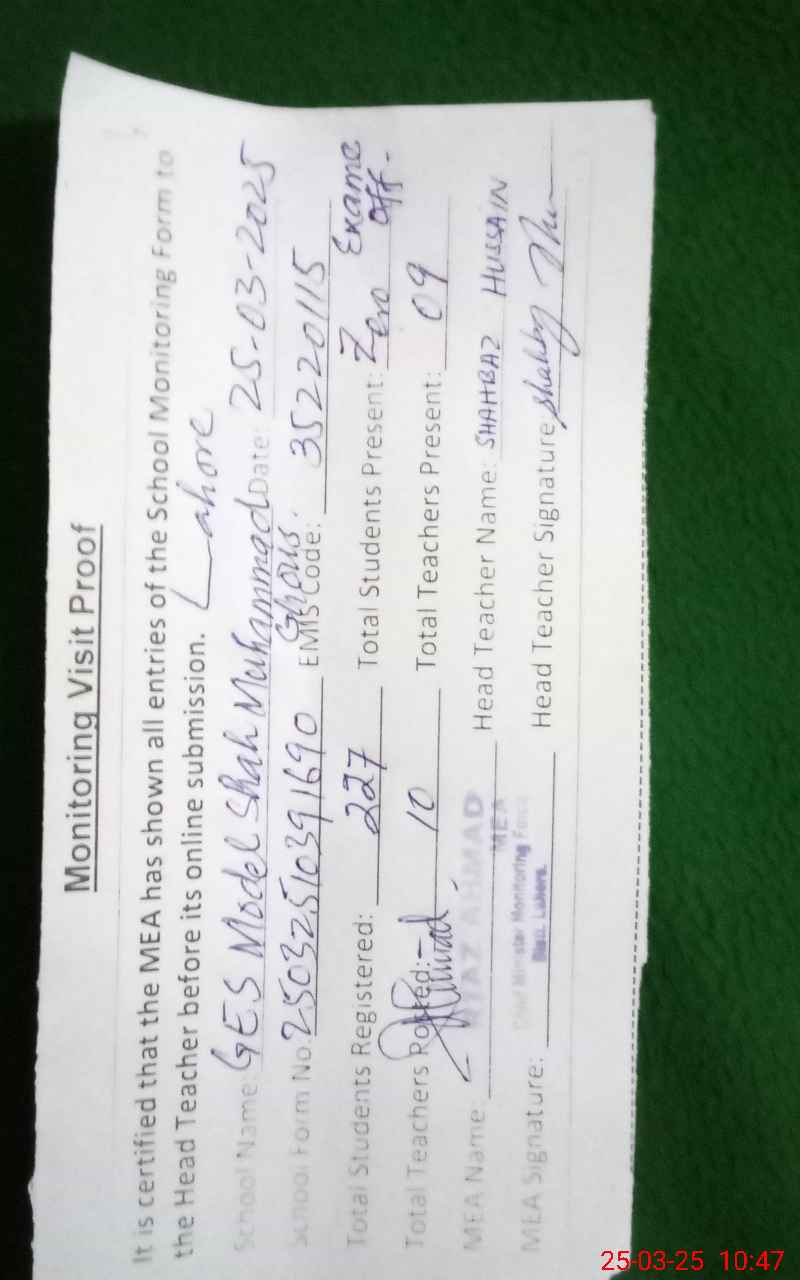 Monitoring Visit Proof
It is certified that the MEA has shown all entries of the School Monitoring Form to
the Head Teacher before its online submission. Lahore
School Name: GES Model Shah Muhammad Ghous. Date: 25-03-2025
School Form No. 2503251039 1690 EMIS Code: 35220115
Total Students Registered: 227 Total Students Present: Zero Exame off.
Total Teachers Posted: 10 Total Teachers Present: 09
MEA Name: RIAZ AHMAD Head Teacher Name: SHAHBAZ HUSSAIN
MEA
Chief Minister Monitoring Force
Distt. Lahore.
MEA Signature: Head Teacher Signature
25-03-25 10:47